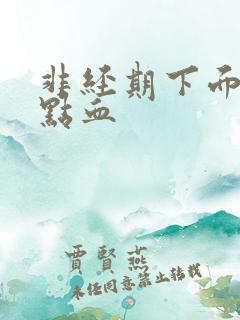 非經期下面
點血
賈賢燕
未經同意禁止轉載